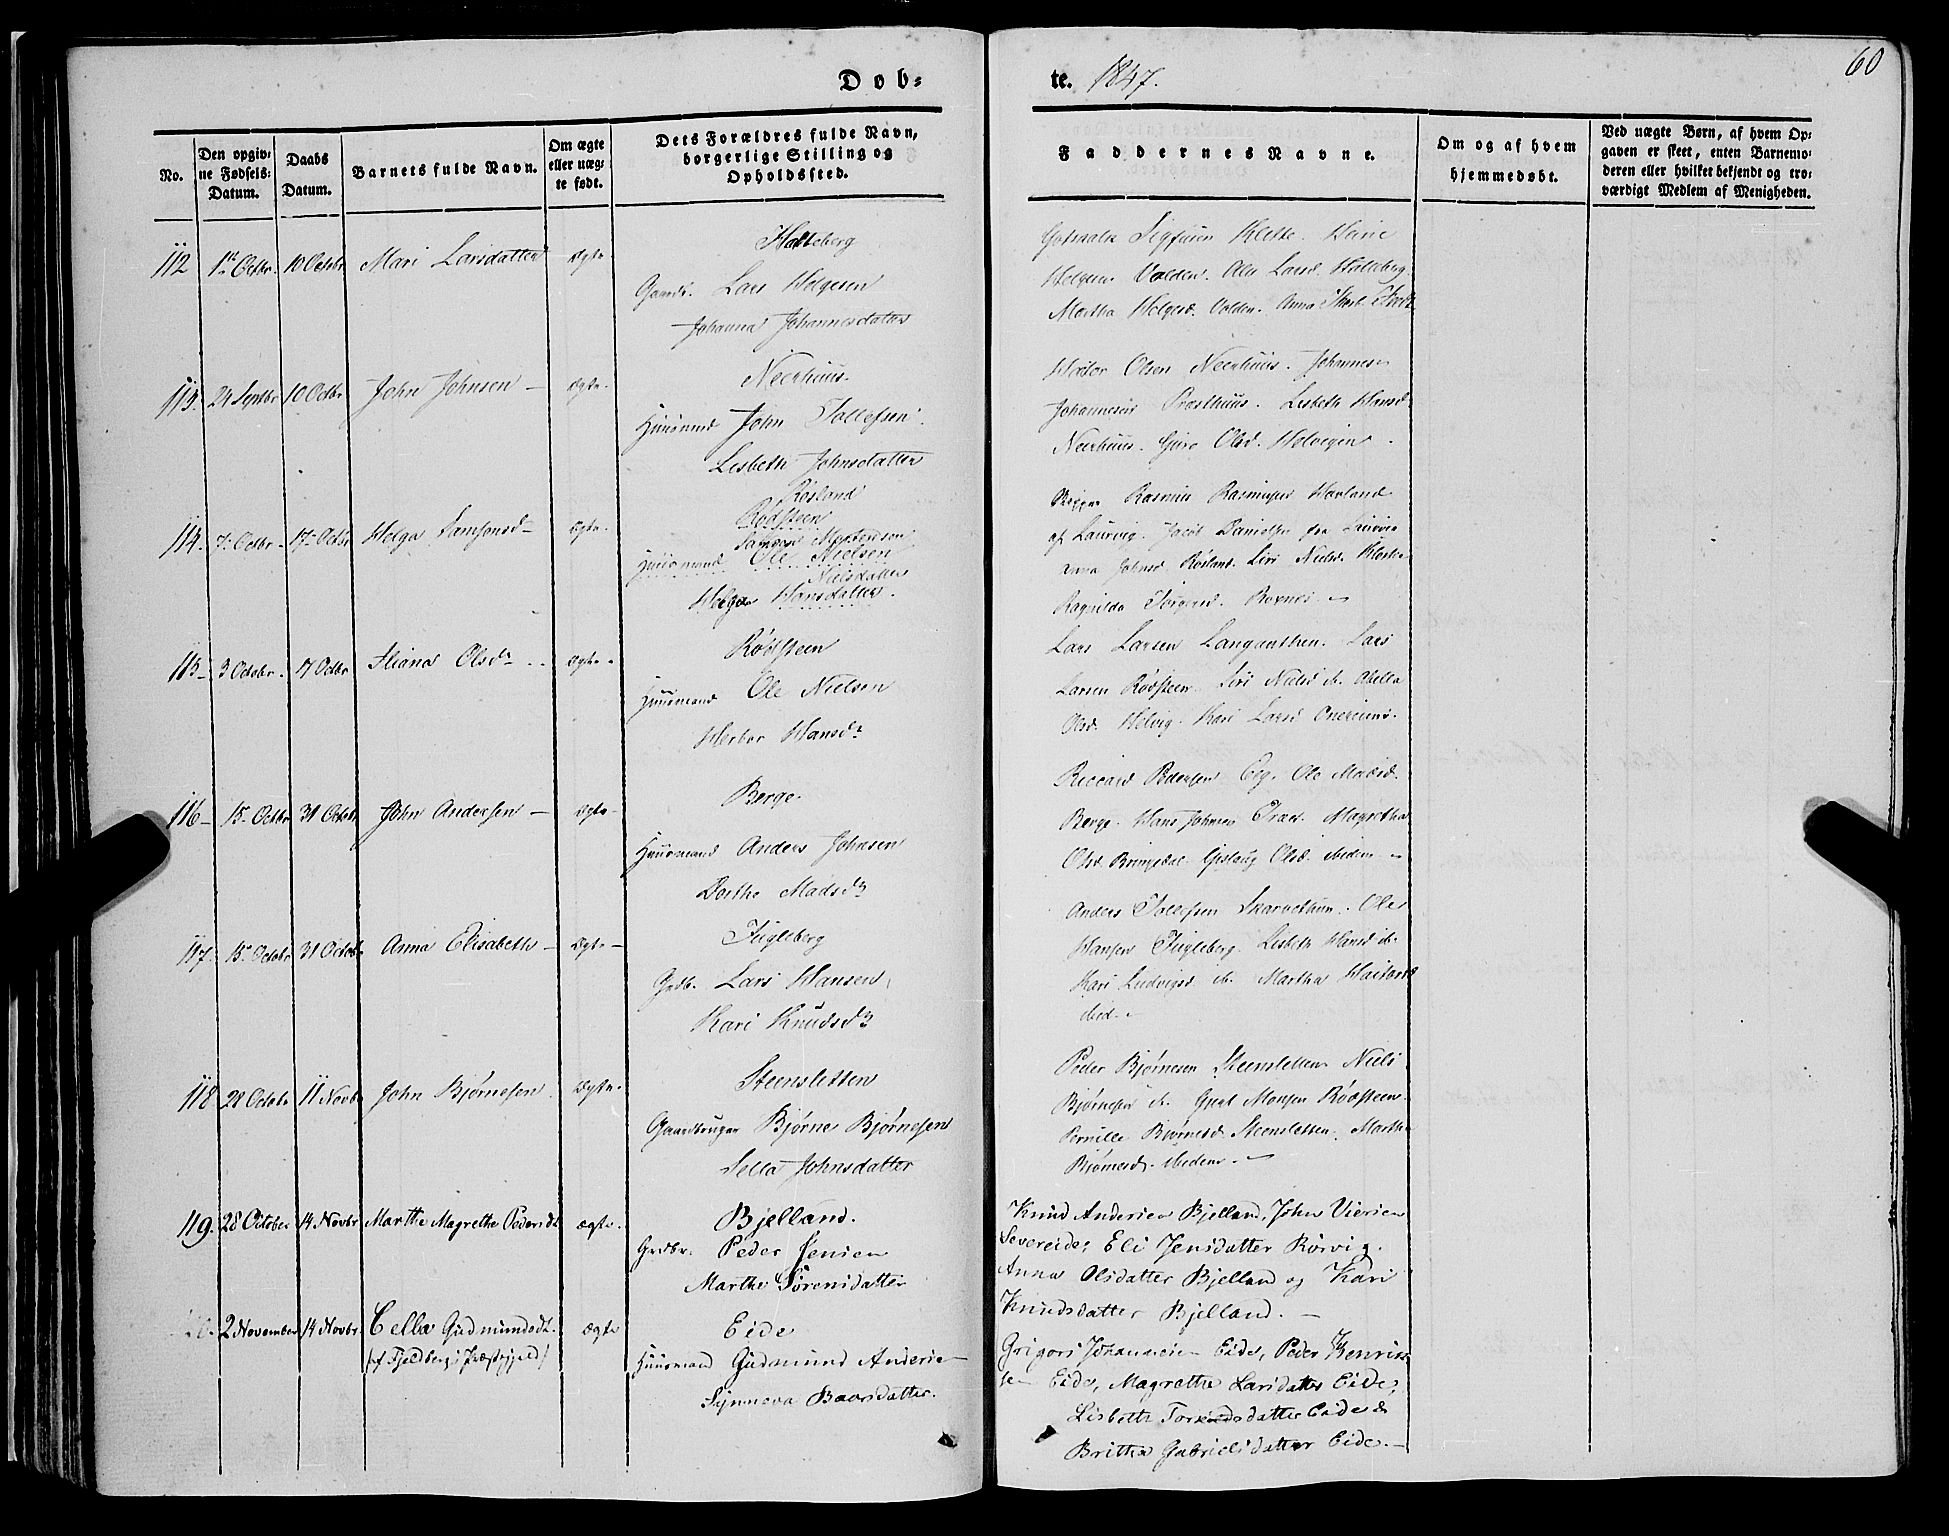 60
Dob-
te. 1847.
No.
Den opgiv-
ne Fødsels-
Datum.
Daabs
Datum.
Barnets fulde Navn.
Om ægte
eller uæg-
te født.
Dets Forældres fulde Navn,
borgerlige Stilling og
Opholdssted.
Faddernes Navne.
Om og af hvem
hjemmedøbt.
Ved uægte Børn, af hvem Op-
gaven er skeet, enten Barnemo-
deren eller hvilket bekjendt og tro-
værdigt Medlem af Menigheden.
Halleberg
112 10 Octobr Mari Larsdatter ægte
Gaardb. Lars Helgesen
Johanna Johannesdatter
Helgesen Valden. Ole Larsd. Halleberg
Martha Helgesd. Valden. Anna
Neerhuus.
113. 24 Septbr 10 Octbr John Johnsen – ægte.
Huusmand John Tollefsen
Lisbeth Johnsdatter
Olsen Neerhuus. Johannes
Johannesen Præsthuus. Lisbeth Hansd.
Neerhuus. Guro Olsd. Helvigen.
Røsland
Rødsteen
114. 7 Octbr. 17 Octbr Helga Samsonsd – ægte.
Samson Mortensen
Huusmand Ole Nielsen
Nielsdatter
Helga Hansdatter.
Rasmus Rasmusen Havland
af Laurvig. Jacob Danielsen
Anna Johnsd. Røsland. Siri Nielsd.
Ragnilda
Rødsteen
115 – 3 Octobr. 17 Octbr Olsdr. ægte.
Huusmand Ole Nielsen
Herbor Hansdr
Lars Larsen Langauthen. Lars
Larsen Rødsteen. Siri Nielsd. ib.
Olsd. Helvig. Kari Larsd
Berge.
116 – 15 Octbr 31 Octobr John Andersen – ægte.
Huusmand Anders Johnsen
Dorthe Madsdr
Pedersen Eeg. Ole Madsd.
Berge. Hans Johnsen Magretha
Olsd. Gislaug Olsd. ibidem
Fugleberg
117. 15 Octobr 31 Octobr Anna Elisabeth – ægte –
Grdb. Lars Hansen
Kari Knudsdr
Anders Tollefsen Ole
Hansen Fugleberg. Lisbeth Hansd ib.
Kari Ludvigsd ib. Martha
ibid.
Steensletten
118 28 Octobr 11 Novbr John Bjørnesen. ægte.
Gaardbruger Bjørne Bjørnesen
Sella Johnsdatter
Peder Bjørnesen Steensletten Niels
Bjørnesen ib. Monsen Rødsteen.
Pernille Bjørnesd. Steensletten. Martha
Bjørnesd. ibidem.
Bjelland.
119. 28 October 14 Novbr Marthe Magrethe Pedersdt ægte.
Grdbr. Peder Jensen
Marthe Sørensdatter
Knud Andersen Bjelland, John Viersen
Severeide, Eli Jensdatter Rørvig.
Anna Olsdatter Bjelland og Kari
Knudsdatter Bjelland. –
Eide
2 November 14 Novbr. Cella Gudmundsdt. ægte
/af Fjeldbergs Præstegjeld/
Huusmand Gudmund Anderse
Synneva Baarsdatter.
Grigors Johannesen Eide, Peder Henriks-
sen Eide, Magrethe Larsdatter Eide,
Lisbeth Torkildsdatter Eide &
Britha Gabrielsdatter Eide. –